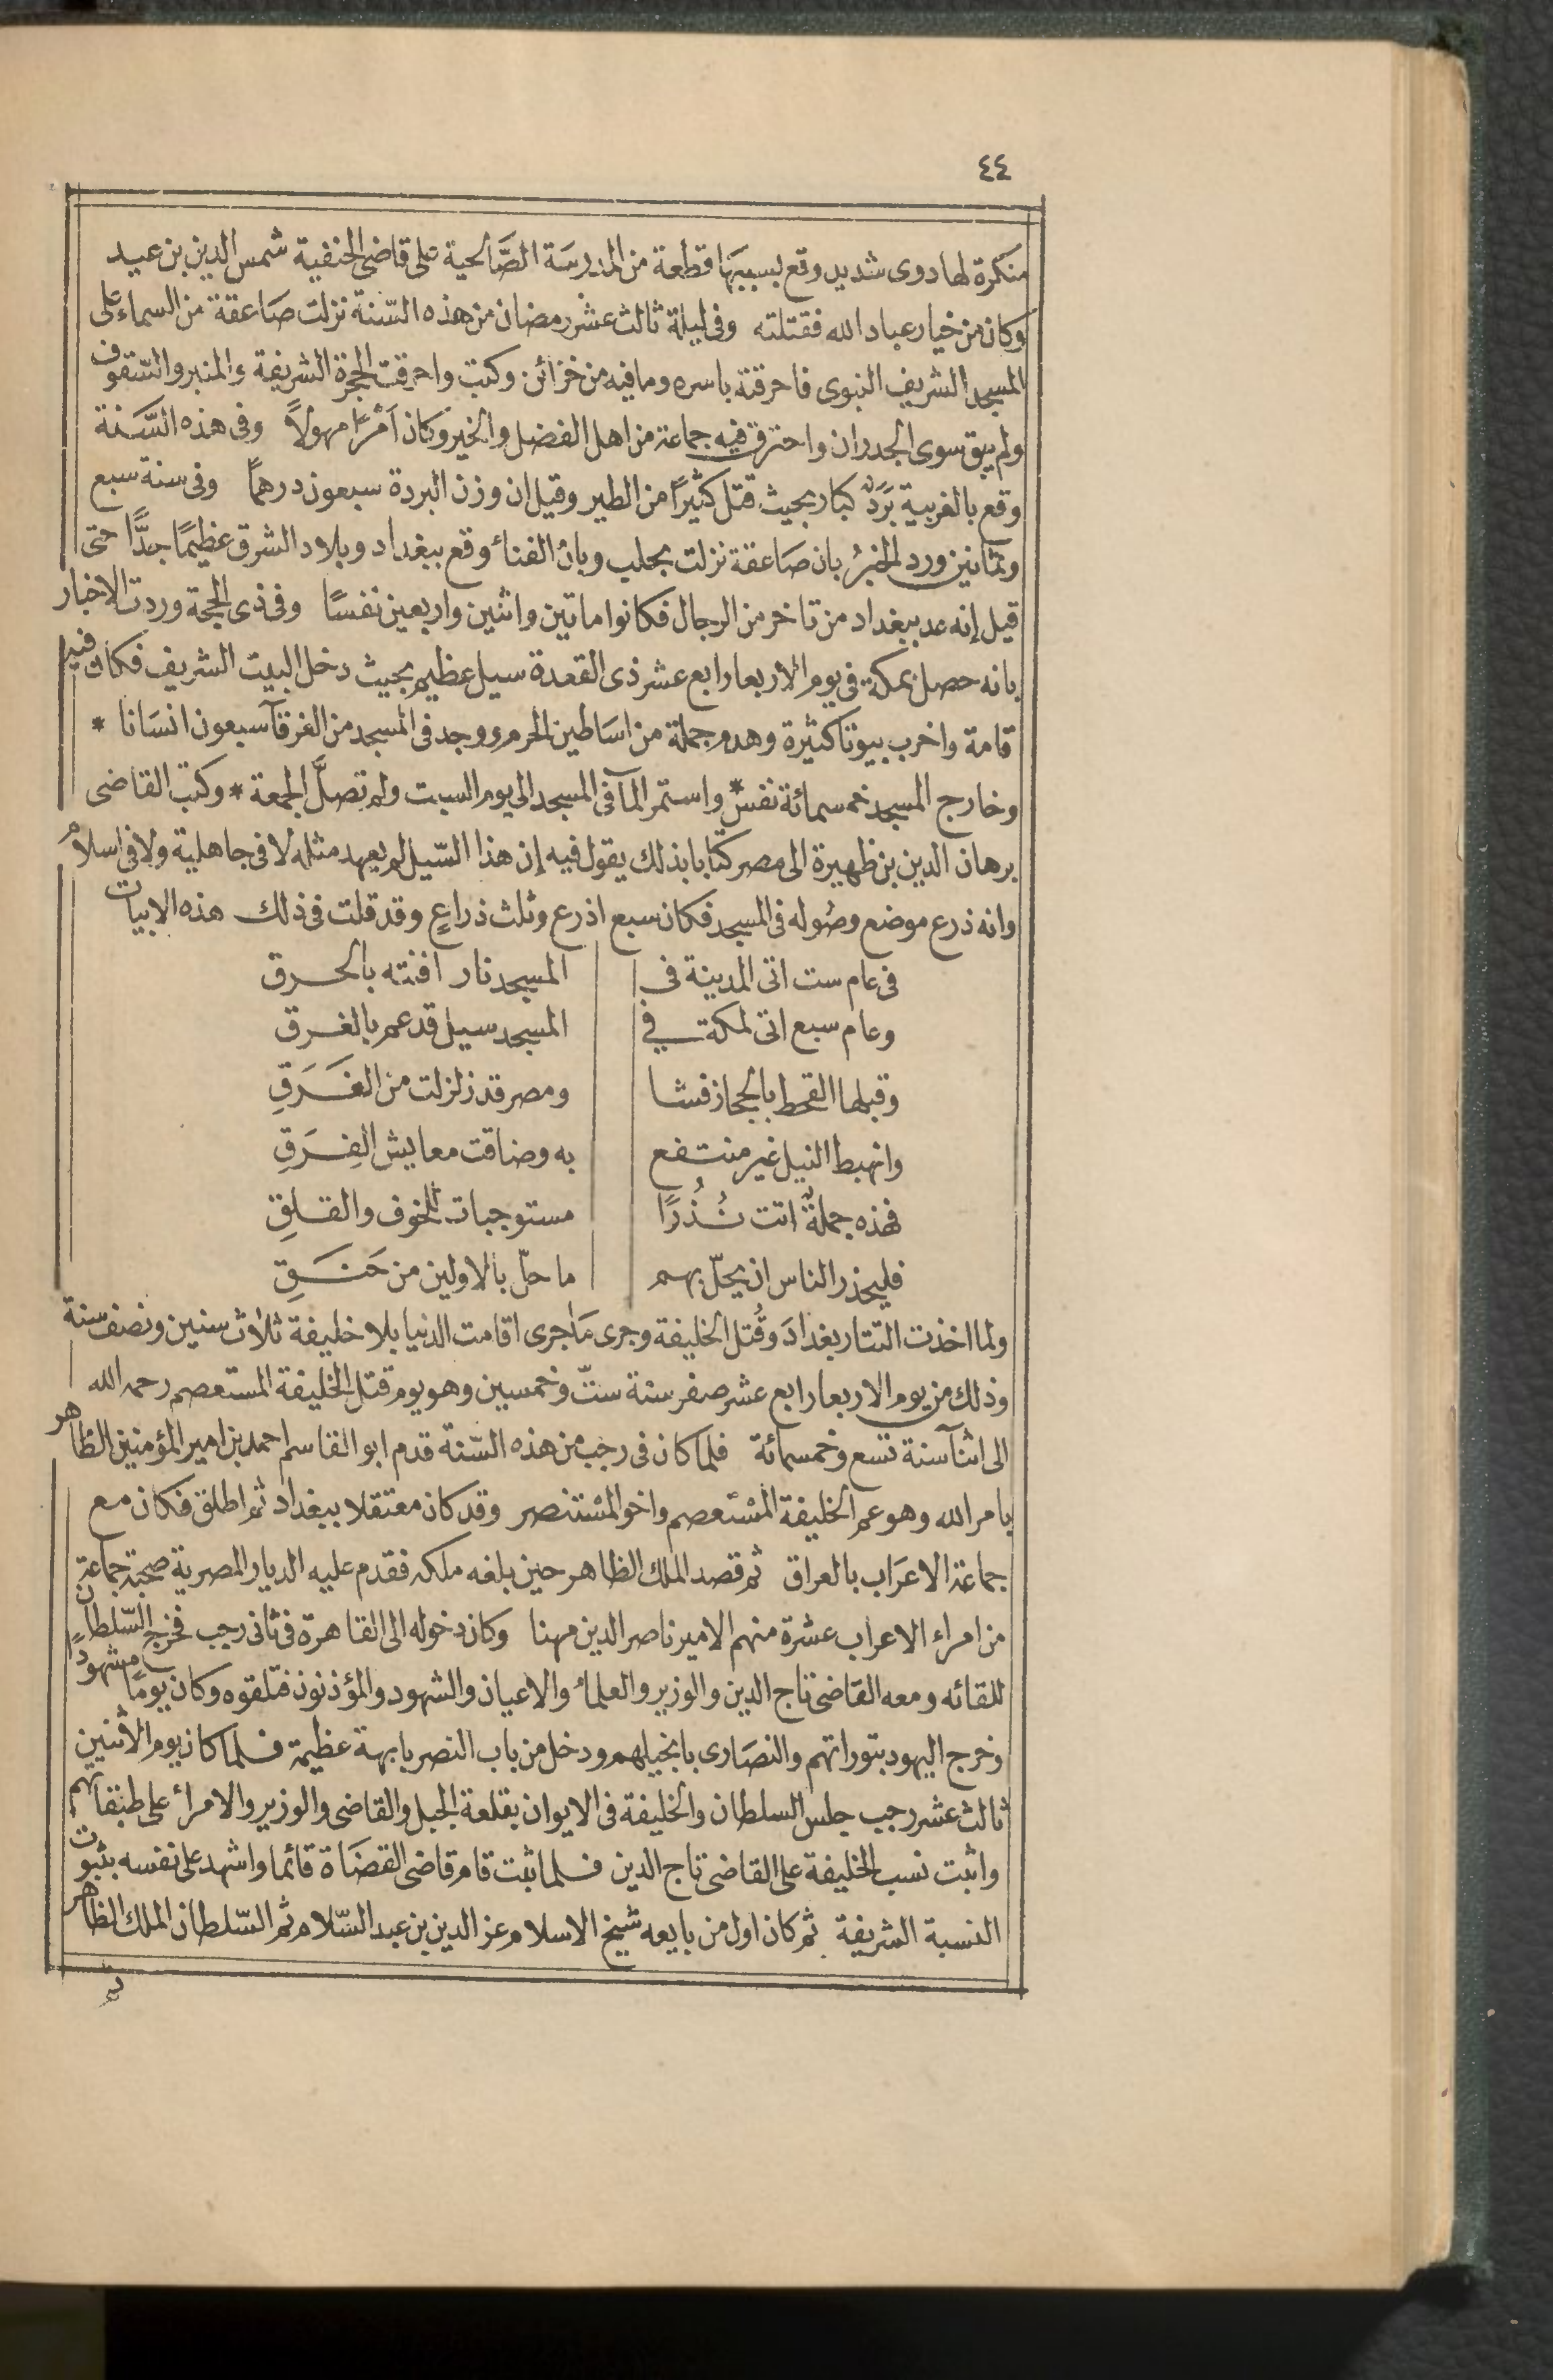 ٤٤
منكرة لها دوى شديد وقع بسببها قطعة من المدرسَة الصَّالحية على قاضى الحنفية شمس الدين بن عيد
وكان من خيار عباد الله فقتلته وفى ليلة ثالث عشر رمضان من هذه السّنة نزلت صَاعقة من السماء على
المسجد الشريف النبوى فاحرقته باسره وما فيه من خزائن وكتب واحرقت الحجرة الشريفة والمنبر والسّقوف
ولم يبق سوى الجدران واحترق فيه جماعة من اهل الفضل والخير وكان أمْرًا مهولاً وفى هذه السَّنة
وقع بالغربية بَرَدٌ كبار بحيث قتل كثيرًا من الطير وقيل ان وزن البردة سبعون درهمًا وفى سنة سبع
وثمانين ورد الخبرُ بان صَاعقة نزلت بحلب وبان الفناء وقع ببغداد وبلاد الشرق عظيمًا جدًّا حتى
قيل إنه عد ببغداد من تاخر من الرجال فكانوا ماتين واثنين واربعين نفسًا وفى ذى الحجة وردت الاخبار
بانه حصل بمكة فى يوم الاربعا رابع عشر ذى القعدة سيل عظيم بحيث دخل البيت الشريف فكان فيه
قامة واخرب بيوتا كثيرة وهدم جملة من اسَاطين الحرم ووجد فى المسجد من الغرقآ سبعون انسَانا *
وخارج المسجد خمسمائة نفسٌ * واستمر المآ فى المسجد الى يوم السبت ولم تصلَّ الجمعة * وكتب القاضى
برهان الدين بن ظهيرة الى مصر كتابا بذلك يقول فيه إن هذا السّيل لم يعهد مثله لا فى جاهلية ولا فى اسلام
وانه ذرع موضع وصُوله فى المسجد فكان سبع اذرع وثلث ذراعٍ وقد قلت فى ذلك هذه الابيات
فى عام ست اتى المدينة فى المسجد نار افنته بالحرق
وعام سبع اتى لمكة فى المسجد سيل قد عم بالغرق
وقبلها القحط بالحجاز فشا ومصر قد زلزلت من الفَرَقِ
وانهبط النيل غير منتفع به وضاقت معايش الفِرَقِ
فهذه جملةٌ اتت نُذُرًا مستوجبات للخوف والقلقِ
فليحذر الناس ان يحلّ بهم ما حلّ بالاولين من حَنَقِ
ولما اخذت التتار بغدادَ وقُتل الخليفة وجرى مَا جرى اقامت الدنيا بلا خليفة ثلاث سنين ونصف سنة
وذلك من يوم الاربعا رابع عشر صفر سنة ستّ وخمسين وهو يوم قتل الخليفة المستعصم رحمه الله
الى اثنآ سنة تسع وخمسمائة فلما كان فى رجب من هذه السّنة قدم ابو القاسم احمد بن امير المؤمنين الظاهر
بامر الله وهو عم الخليفة المسْتعصم واخو المسْتنصر وقد كان معتقلا ببغداد ثم اطلق فكان مع
جماعة الاعرَاب بالعراق ثم قصد الملك الظاهر حين بلغه ملكه فقدم عليه الديار المصرية صحبة جماعة
من امراء الاعراب عشرة منهم الامير ناصر الدين مهنا وكان دخوله الى القاهرة فى ثانى رجب فخرج السّلطان
للقائه ومعه القاضى تاج الدين والوزير والعلماء والاعيان والشهود والمؤذنون فتلقوه وكان يومًا مشهودٍ
وخرج اليهود بتوراتهم والنصَارى بانجيلهم ودخل من باب النصر بابهة عظيمة فلما كان يوم الاثنين
ثالث عشر رجب جلس السلطان والخليفة فى الايوان بقلعة الجبل والقاضى والوزير والامراء على طبقاتهم
واثبت نسب الخليفة على القاضى تاج الدين فلما ثبت قام قاضى القضَاة قائما واشهد على نفسه بثبوت
النسبة الشريفة ثم كان اول من بايعه شيخ الاسلام عز الدين بن عبد السّلام ثم السّلطان الملك الظاهر